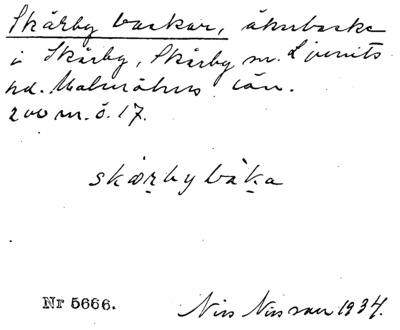 Skårby backar, åkerbacke
i Skårby, Skårby sn. Ljunits
hd. Malmöhus län.
200 m. ö. 17.
skårbybàka
Nr 5666.
Nils Nilsson 1934.